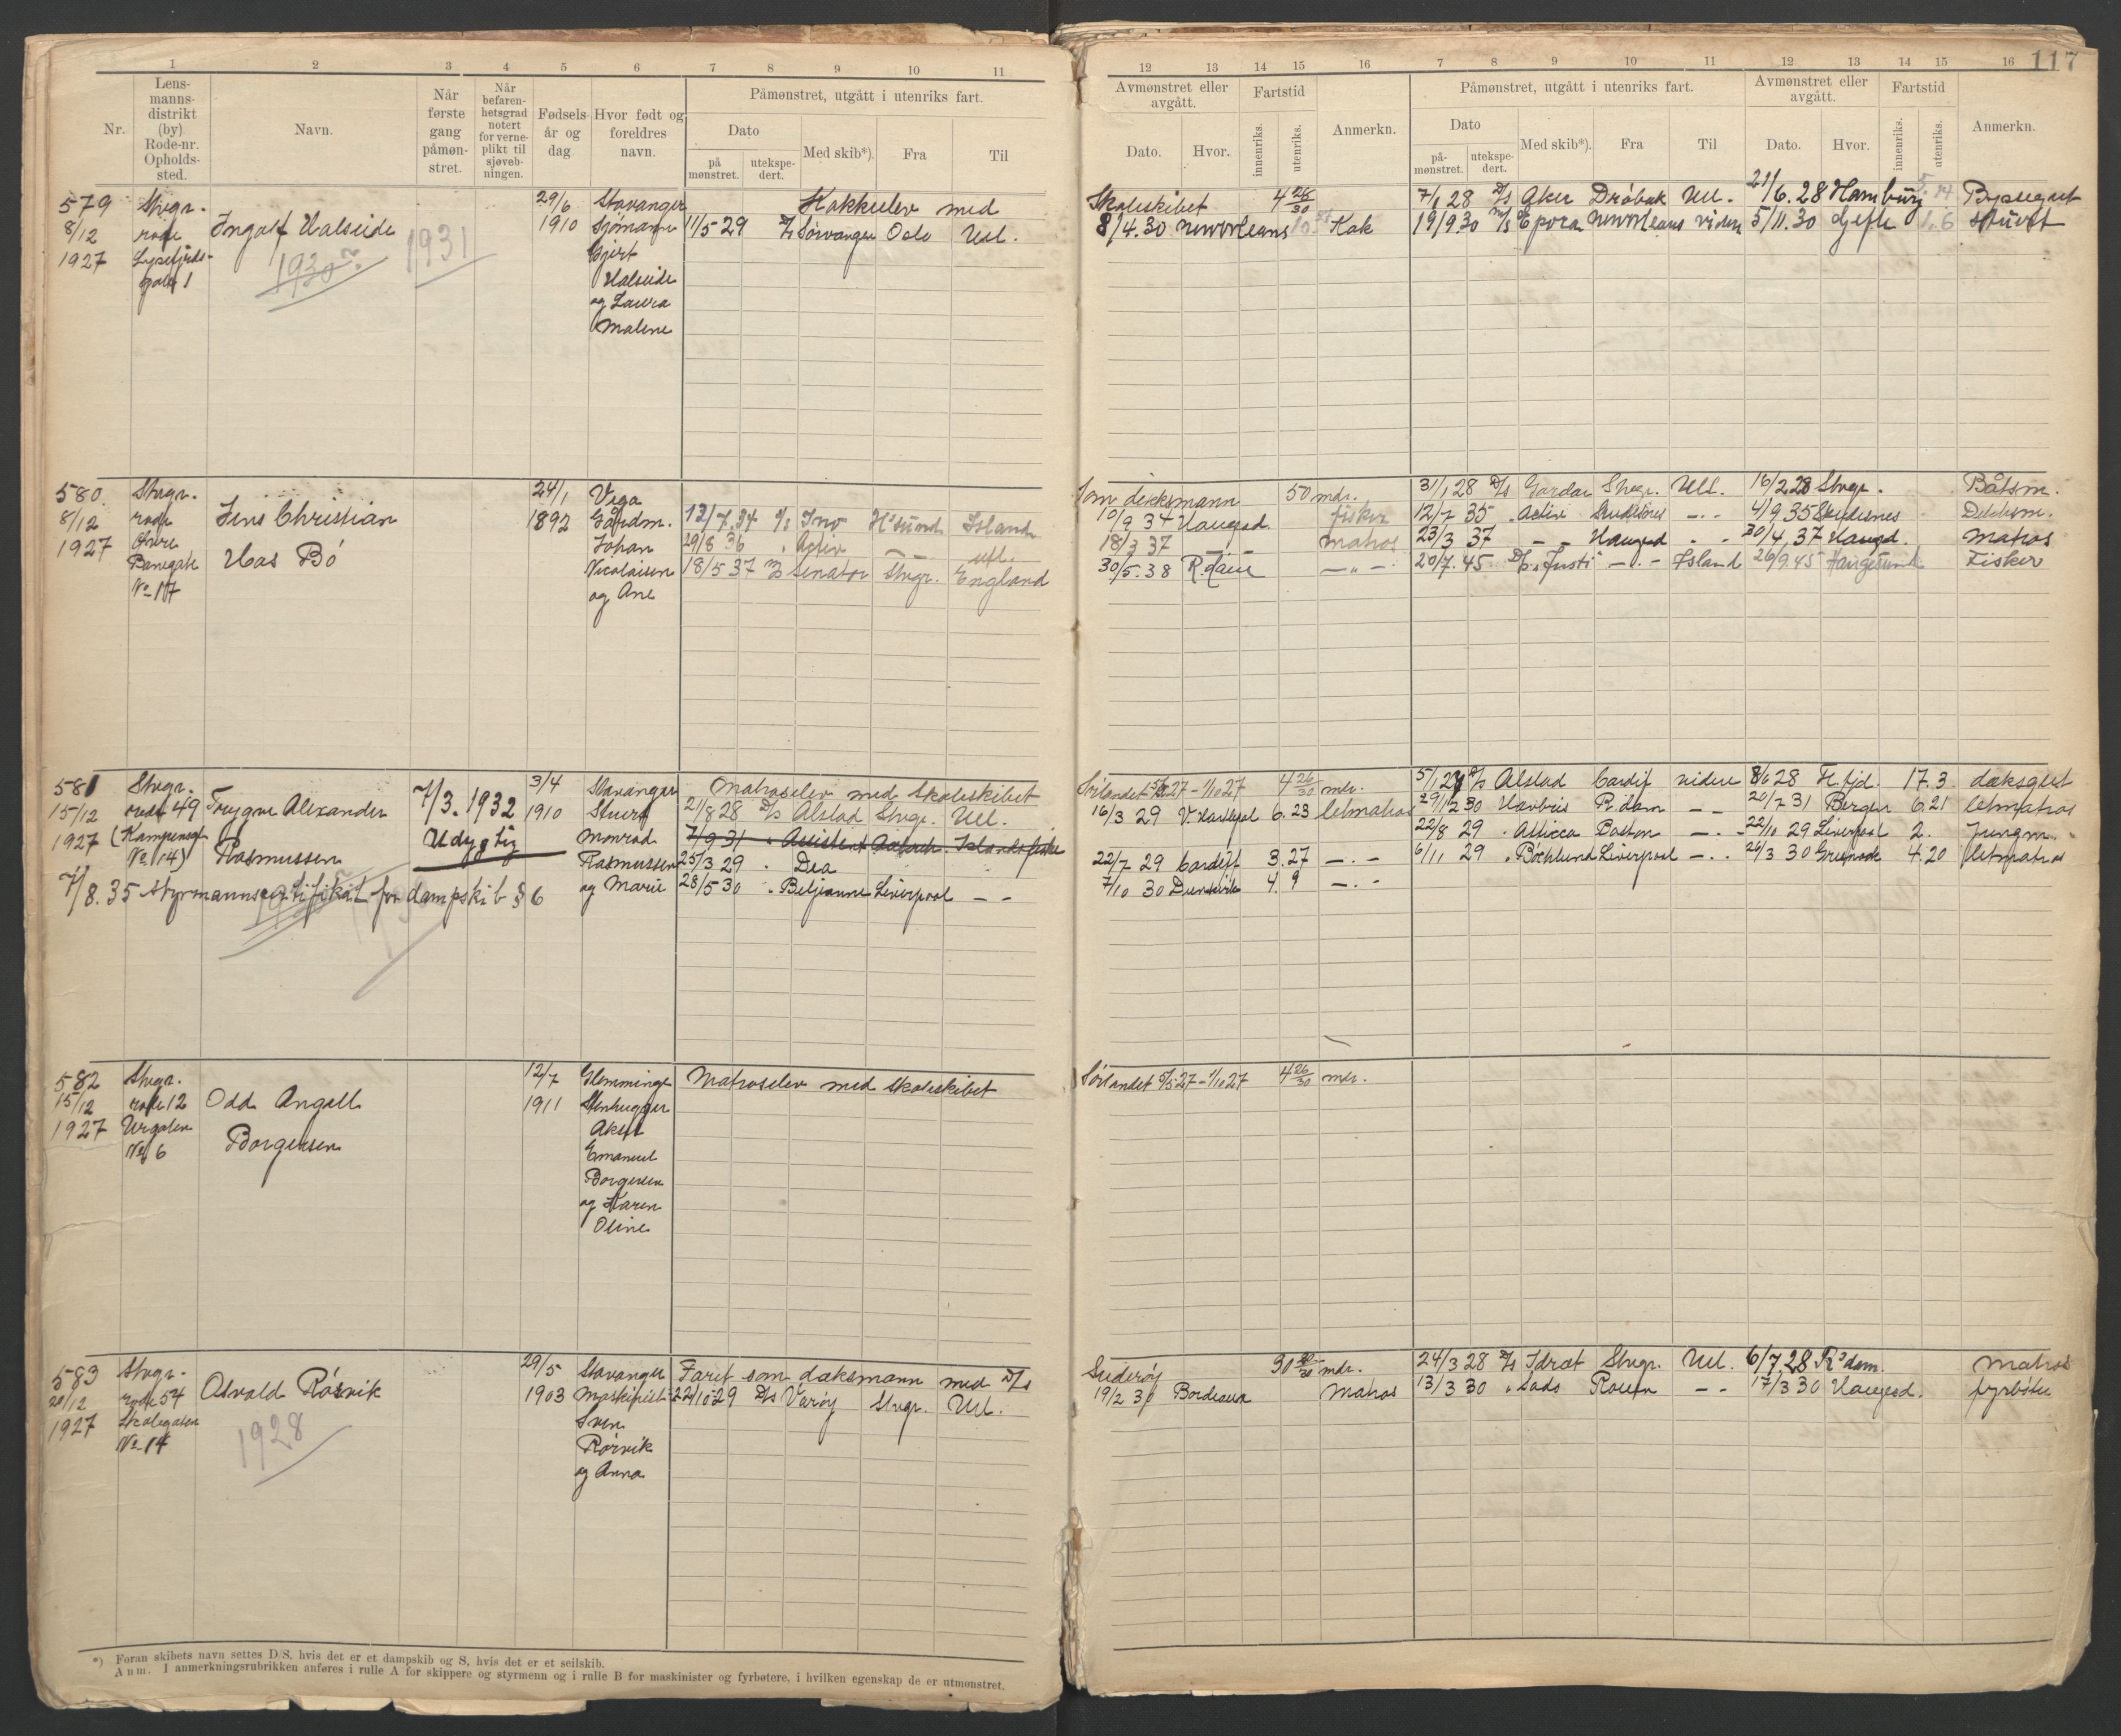 117
1 2 3 4 5 6 7 8 9 10 11
Nr.
Lens-
manns-
distrikt
(by)
Rode-nr.
Opholds-
sted.
Navn.
Når
første
gang
påmøn-
stret.
Når
befaren-
hetsgrad
notert
for verne-
plikt til
sjøveb-
ningen.
Fødsels-
år og
dag
Hvor født og
foreldres
navn.
Påmønstret, utgått i utenriks fart.
Dato
på
mønstret.
utekspe-
dert.
Med skib*).
Fra
Til
12 13 14 15 16 7 8 9 10 11 12 13 14 15 16
Avmønstret eller
avgått.
Dato.
Hvor.
Fartstid
innenriks.
utenriks.
Anmerkn.
Påmønstret, utgått i utenriks fart.
Dato
på-
mønstret.
utekspe-
dert.
Med skib*).
Fra
Til
Avmønstret eller
avgått.
Dato.
Hvor.
Fartstid
innenriks.
utenriks.
Anmerkn.
579
8/12
1927
Stvgr.
rode
Ingolf Halseide
1930
1931
29/6
1910
Stavanger
Sjømann
Gjert
Halseide
og Laura
Malene
Kokkelev med
11/5 29 Sørvanger Oslo Utl.
Skoleskibet 4 26/30
8/4.30 New Orleans Kok
7/1 28 D/S Aker Drøbak Utl. 21/6.28 Hamburg
19/9.30 New Orleans videre 5/11.30 Gefle Stuert
580
8/12
1927
Stvgr.
rode
No 17
Jens Christian
Has Bö
24/1
1892
Vega
Gårdm.
Johan
Nicolaisen
og Ane
12/7.34 Ino H'sund Island
29/8 36 Activ — utl.
18/5 37 Senator Stvgr. England
Som dekksmann 50 mdr.
10/9 34 Haugesd fisker
18/3 37 — matros
30/5.38 — " —
31/1 28 D/S Gardar Stvgr. Utl. 16/2.28 Stvgr. Båtsm.
12/7 35 Activ Skudesnes — 4/9 35 Skudesnes Dekksm.
23/3 37 — Haugesd — 30/4.37 Haugesd. Matros
20/7.45 — Island 26/9.45 Haugesund Fisker
581
15/12
1927
Stvgr.
rode 49
(Kampensgt
No 14)
Trygve Alexander
Rasmussen
7/3.1932
Udygtig
3/4
1910
Stavanger
Stuert
Monrad
Rasmussen
og Marie
7/8.35 Styrmannscertifikat for dampskib § 6
Matroselev med Skoleskibet
21/8 28 D/S Alstad Stvgr. Utl.
7/9 31 Assistent Islandsfiske
25/3 29 Dea
28/5 30 Beljeanne Liverpool — —
Sørlandet 5/5 27 – 1/10 27 4 26/30 mdr.
16/3 29 V. Hartlepool 6. 23 letmatros
22/7 29 Cardiff 3. 27 — . —
7/10 30 4. 9 — . —
5/1 28 D/S Alstad Cardif videre 8/6 28 17. 3 dæksgut
29/12 30 Havbris R.dam — 20/7 31 Bergen 6. 21 letmatros
22/8 29 Atticca Boston — . — 22/10 29 Liverpool 2. Jungm.
6/11 29 Liverpool — . . 26/3 30 4. 20 letmatros
582
15/12
1927
Stvgr.
rode 12
No 6
Odd Angell
Borgersen
12/7
1911
Glemminge
Stenhugger
Aksel
Emanuel
Borgersen
og Karen
Oline
Matroselev med skoleskibet
Sørlandet 5/5 27 – 1/10 27 4 26/30 mdr.
583
20/12
1927
Stvgr.
rode 54
Skolegaten
No 14
Osvald Rørvik
1928
29/5
1903
Stavanger
Maskinist
Sven
Rørvik
og Anna
Faret som dæksmann med D/S
22/10 29 D/S Varøy Stvgr. Utl.
Suderøy mdr.
19/2 30 Bordeaux Matros
24/3 28 D/S Idræt Stvgr. Utl. 6/7.28 R'dam. Matros
13/3 30 Sado Rouen — — 17/3 30 Haugesd. fyrbøter
*) Foran skibets navn settes D/S, hvis det er et dampskib og S, hvis det er et seilskib.
Anm. I anmerkningsrubrikken anføres i rulle A for skippere og styrmenn og i rulle B for maskinister og fyrbøtere, i hvilken egenskap de er utmønstret.